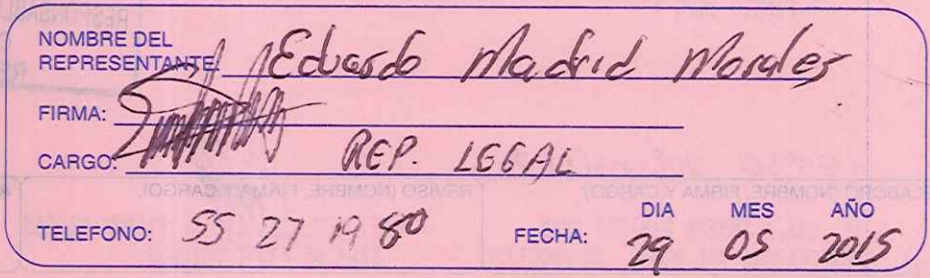 NOMBRE DEL
REPRESENTANTE: Eduardo Madrid Morales
FIRMA:
CARGO: REP. LEGAL
DIA MES AÑO
TELEFONO: 55 27 19 80 FECHA: 29 05 2015